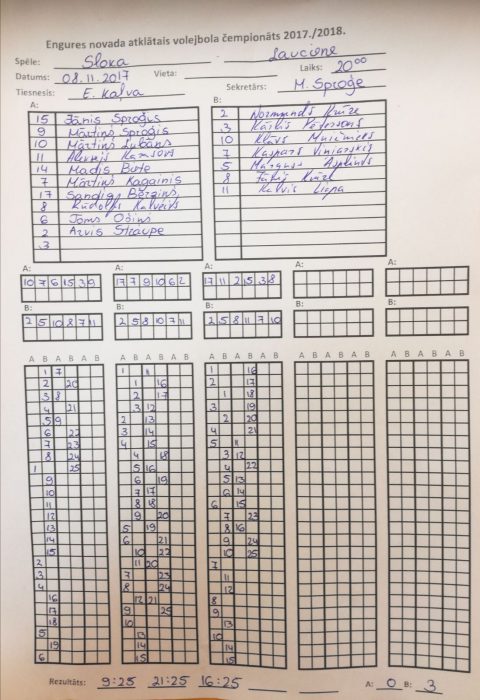 Engures novada atklātais volejbola čempionāts 2017./2018.
Spēle: Sloka Lauciene
Datums: 08.11.2017 Vieta: Laiks: 20:00
Tiesnesis: E. Kaļva Sekretārs: M. Sproģe
A: B:
15 Jānis Sproģis 2 Normunds
9 Mārtiņš Sproģis 3
10 Mārtiņš Lubāns 10
11 7 Kaspars
14 Madis Bute 5
7 Mārtiņš Kagainis 8
17 Sandijs Bērziņš 11 Kalvis Liepa
8 Rūdolfs
6 Toms
2 Arvis Straupe
3
A: A: A: A: A:
10 7 6 15 3 9 17 7 9 10 6 2 17 11 2 5 3 8
B: B: B: B: B:
2 5 10 8 7 11 2 5 8 10 7 11 2 5 8 11 7 10
A B A B A B A B A B A B A B A B A B A B A B A B A B A B A B
1 7 1 11 1 16
2 20 1 16 2 17
3 8 2 17 1 18
4 21 3 12 3 19
5 9 2 13 2 20
6 22 3 14 4 21
7 23 4 15 5 11
8 24 4 18 3 12
1 25 5 16 4 22
9 6 19 5 13
10 7 17 6 14
11 8 18 6 15
12 9 20 7 23
13 5 19 8 16
14 6 21 9 24
15 10 22 10 25
2 11 20 7
3 7 23 11
4 8 24 12
16 12 21 8
17 9 25 9
18 10 13
5 13 10
19 14 14
6 15 15
Rezultāts: 9:25 21:25 16:25 A: 0 B: 3